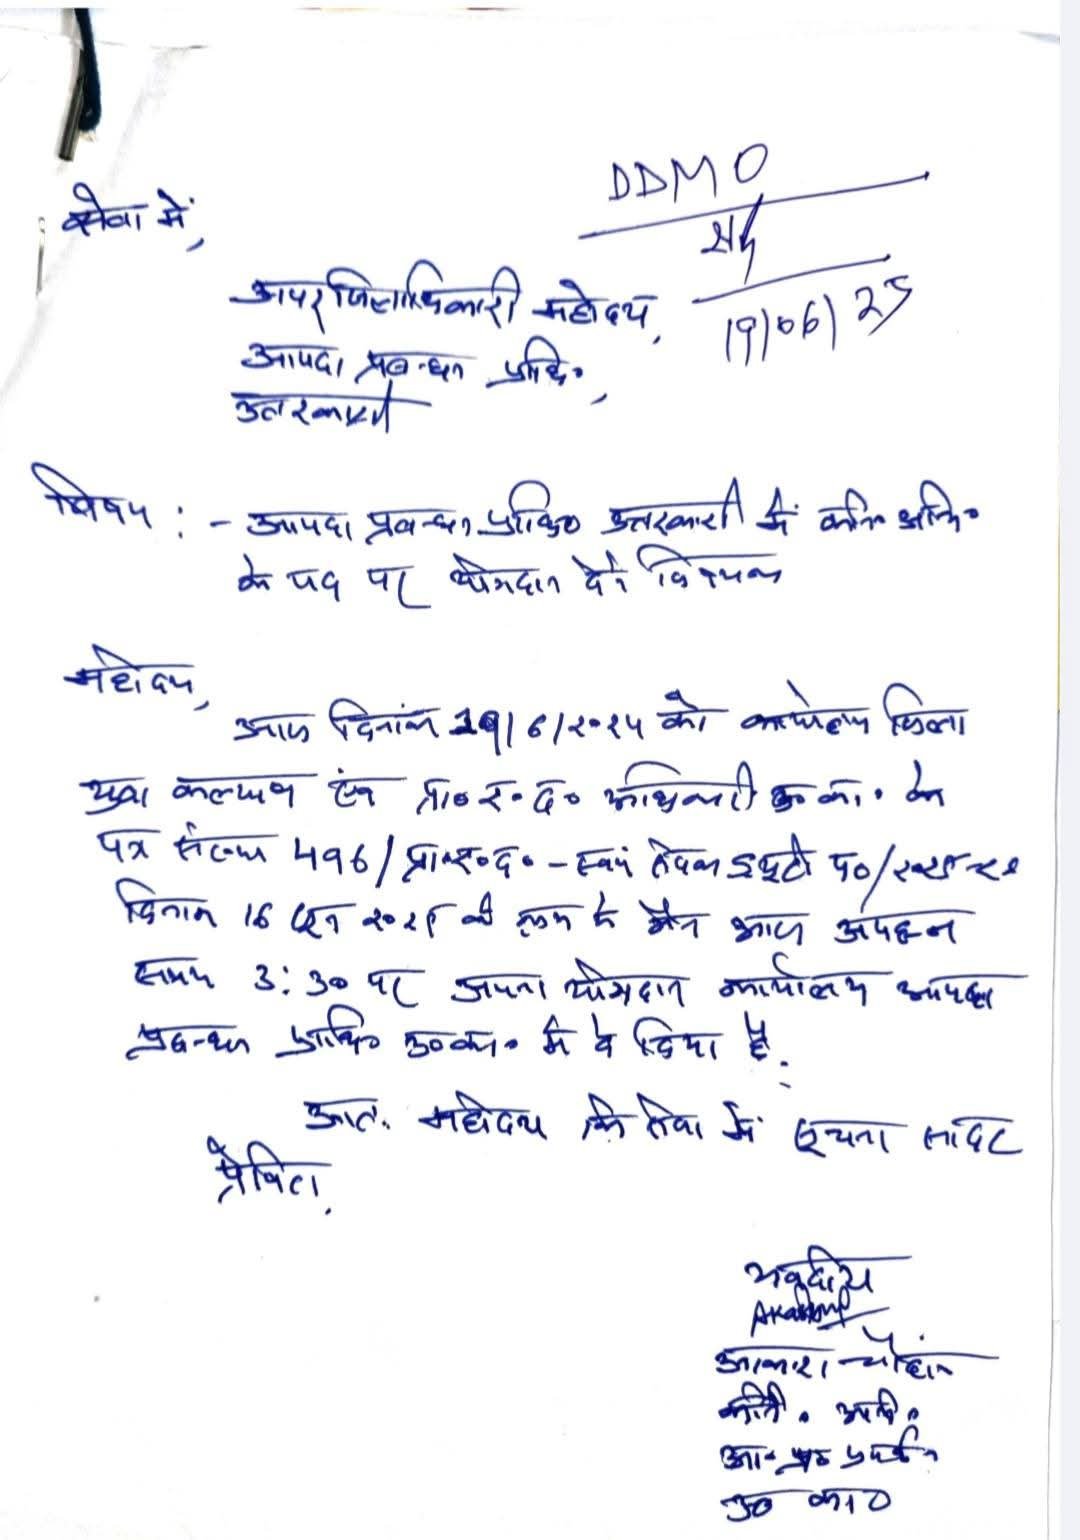 DDMO
19/06/25
सेवा में,
अपर जिलाधिकारी महोदय,
आपदा प्रबन्धन प्राधि॰,
उत्तरकाशी
विषय :- आपदा प्रबन्धन प्राधि॰ उत्तरकाशी में कनि॰ अभि॰
के पद पर योगदान देने विषयक
महोदय,
आज दिनांक 19/6/२०२५ को कार्यालय जिला
युवा कल्याण एंव प्रा०र०द० अधिकारी उ०का० के
पत्र संख्या 496/प्रा०र०द०-स्वयं सेवक ड्यूटी प०/
दिनांक 16 जून २०२५ के क्रम में मैंने आज अपहरन
समय 3:30 पर अपना योगदान कार्यालय आपदा
प्रबन्धन प्राधि॰ उ०का० में दे दिया है.
अतः महोदय कि सेवा में सूचना सादर
प्रेषित.
भवदीय
Akash
आकाश चौहान
कनि॰ अभि॰
आ॰ प्र० प्राधि॰
उ० का०